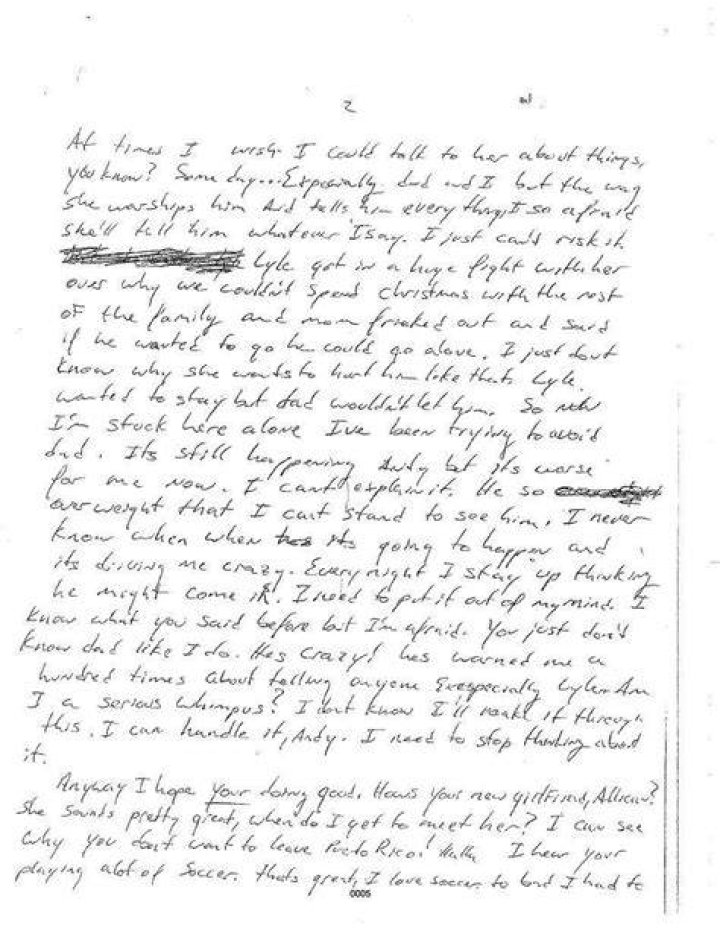 2
At times I wish I could talk to her about things,
you know? Some day...Expecially dad and I but the way
she warships him and tells him everything, I so afraid
she'll tell him whatever I say. I just can't risk it.
Lyle got in a huge fight with her
over why we couldn't spend christmas with the rest
of the family and mom friaked out and said
if he wanted to go he could go alove. I just dont
know why she wants to hurt him like that. Lyle
wanted to stay but dad wouldn't let him. So now
I'm stuck here alone I've been trying to avoid
dad. Its still happening Andy but its worse
for me now. I can't explain it. He so
overweight that I can't stand to see him. I never
know when when its going to happen and
its driving me crazy. Every night I stay up thinking
he might come in. I need to put it out of my mind. I
know what you said before but I'm afraid. You just don't
know dad like I do. Hes crazy! hes warned me a
hundred times about telling anyone Exespecially Lyle. Am
I a serious whimpus? I dont know I'll make it through
this. I can handle it, Andy. I need to stop thinking about
it.
Anyway I hope your doing good. How's your new girlfriend, Allison?
She sounds pretty great, when do I get to meet her? I can see
why you don't want to leave Puerto Rico! HaHa I hear your
playing alot of Soccer. thats great, I love soccer to but I had to
0005